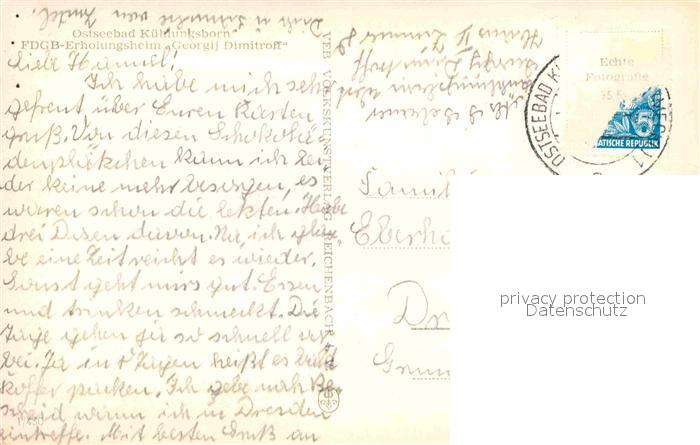 Ostseebad Kühlungsborn
FDGB-Erholungsheim „Georgij Dimitroff"
Liebe Hannel!
Ich habe mich sehr
gefreut über Euren Karten
gruß. Von diesen Schokola
denplätzchen kann ich lei
der keine mehr besorgen, es
waren schon die letzten. Habe
drei Dosen davon. Na, ich glau
be eine Zeit reicht es wieder.
Sonst geht mirs gut. Essen
und trinken schmeckt. Die
Tage gehen ja so schnell vor
bei. Ja in 8 Tagen heißt es wied
Koffer packen. Ich gebe noch Be
scheid wann ich in Dresden
eintreffe. Mit besten Gruß an
Dich u.
VEB VOLKSKUNSTVERLAG REICHENBACH
Haus II Zimmer
Echte
Fotografie
5
ATISCHE REPUBLIK
OSTSEEBAD K
Famili
Eberh
Dr
privacy protection
Datenschutz